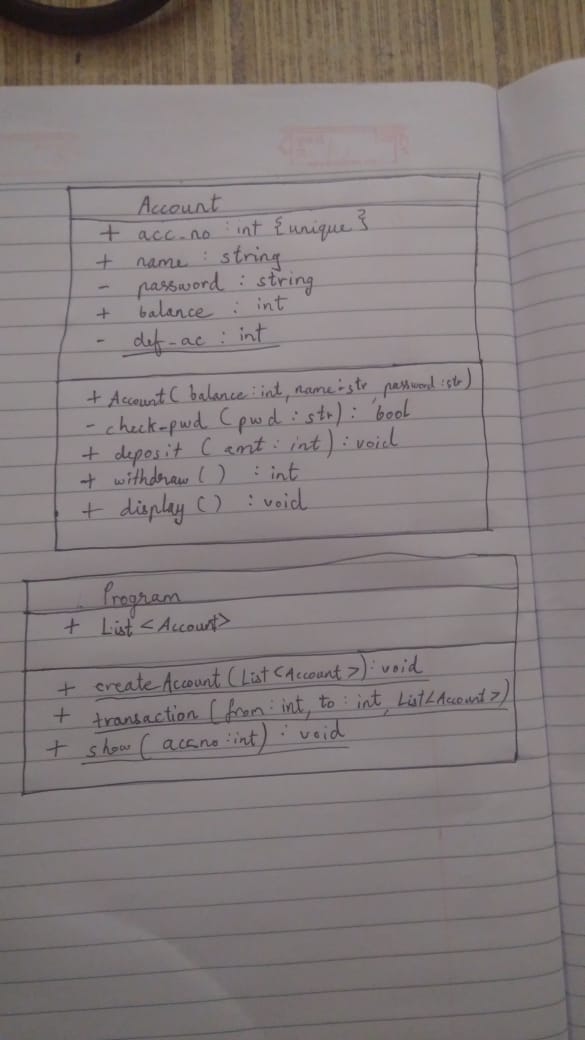 Account
+ acc_no : int {unique}
+ name : string
- password : string
+ balance : int
- def_ac : int
+ Account( balance : int, name : str, password : str)
- check_pwd (pwd : str) : bool
+ deposit (amt : int) : void
+ withdraw () : int
+ display () : void
Program
+ List <Account>
+ create Account (List <Account>) : void
+ transaction (from : int, to : int, List <Account>)
+ show ( accno : int) : void